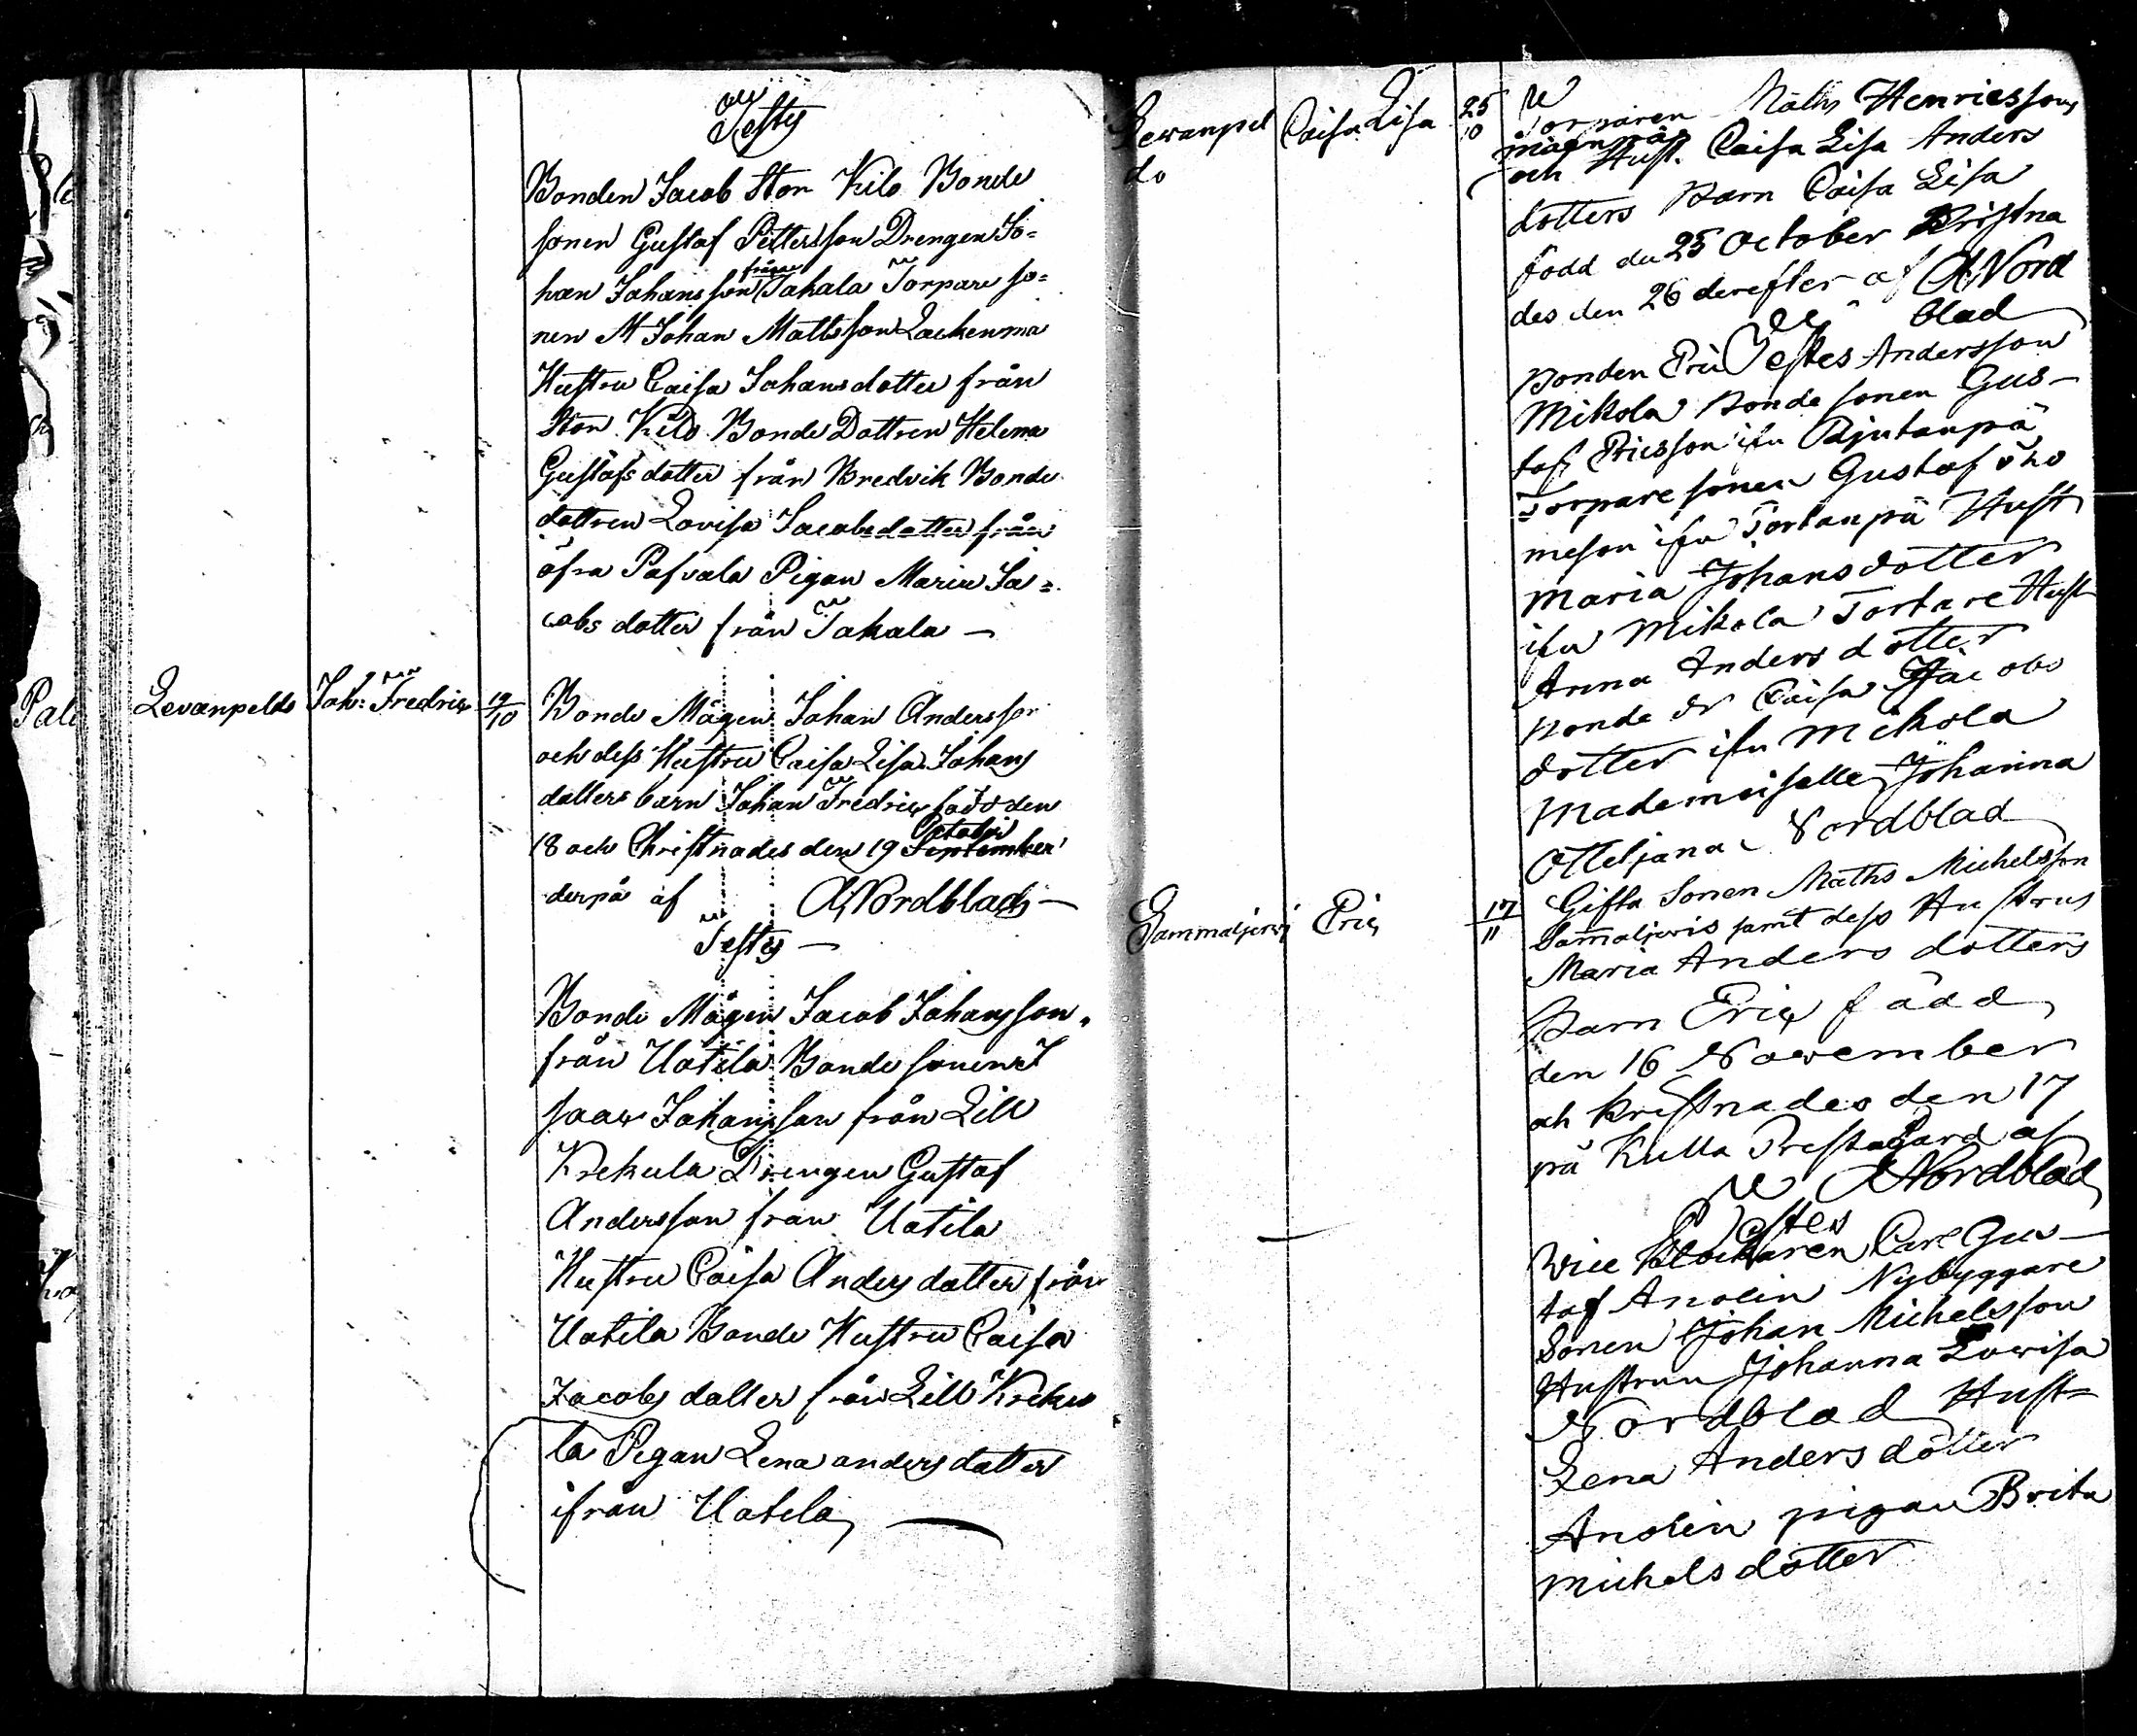 Testes
Bonden Jacob Stor Kilo Bonde
sonen Gustaf Pettersson Drengen Jo=
han Johansson från Tahala Torpare so=
nen M Johan Mattsson Lackenma
Hustru Caisa Johansdotter från
Stor Kilo Bonde Dottren Helena
Gustafsdotter från Bredvik Bonde
dottren Lovisa Jacobsdotter från
öfra Pafvala Pigan Maria Ja=
cobs dotter från Tahala —
Pal
Levanpeldo
Joh: Fredric
19/10
Bonde Mågen Johan Andersson
och dess Hustru Caisa Lisa Johans
dotters barn Johan Fredric född den
18 och Christnades den 19 September Octobr
derpå af A Nordblad —
Testes —
Bonde Mågen Jacob Johansson
från Uotila Bonde sonen I
saac Johansson från Lill
Krekula Drengen Gustaf
Andersson från Uotila
Hustru Caisa Anders dotter från
Uotila Bonde Hustru Caisa
Jacobs dotter från Lill Kreku
la Pigan Lena anders dotter
ifrån Uotila —
Levanpel
do
Caisa Lisa
25/10
Torparen Maths Henricssons
och Hust. Caisa Lisa Anders
dotters Barn Caisa Lisa
född du 25 October Kristna
des den 26 derefter af A Nord
blad
Testes
Bonden Eric Andersson
Mikola Bonde sonen Gus-
taf Ericsson ifrn
Torpare sonen Gustaf
meson ifrn Hust
Maria Johansdotter
ifrn Mikola Torpare Hust
Anna Anders dotter
Bonde dr Caisa Jacobs
dotter ifrn Mikola
Mademoiselle Johanna
Otteljana Nordblad
Sammaljerwi
Eric
17/11
Gifta Sonen Maths Michelsson
Sammaljervis samt dess Hustrus
Maria Anders dotters
Barn Eric född
den 16 November
och Kristnades den 17
på Kulla Prestagård af
A Nordblad
Testes
Vice Klockaren Carl Gus-
taf Anolin Nybyggare
Sonen Johan Michelsson
Hustrun Johanna Lovisa
Nordblad Hust-
Lena Anders dotter
Anolin pigan Brita
Michels dotter